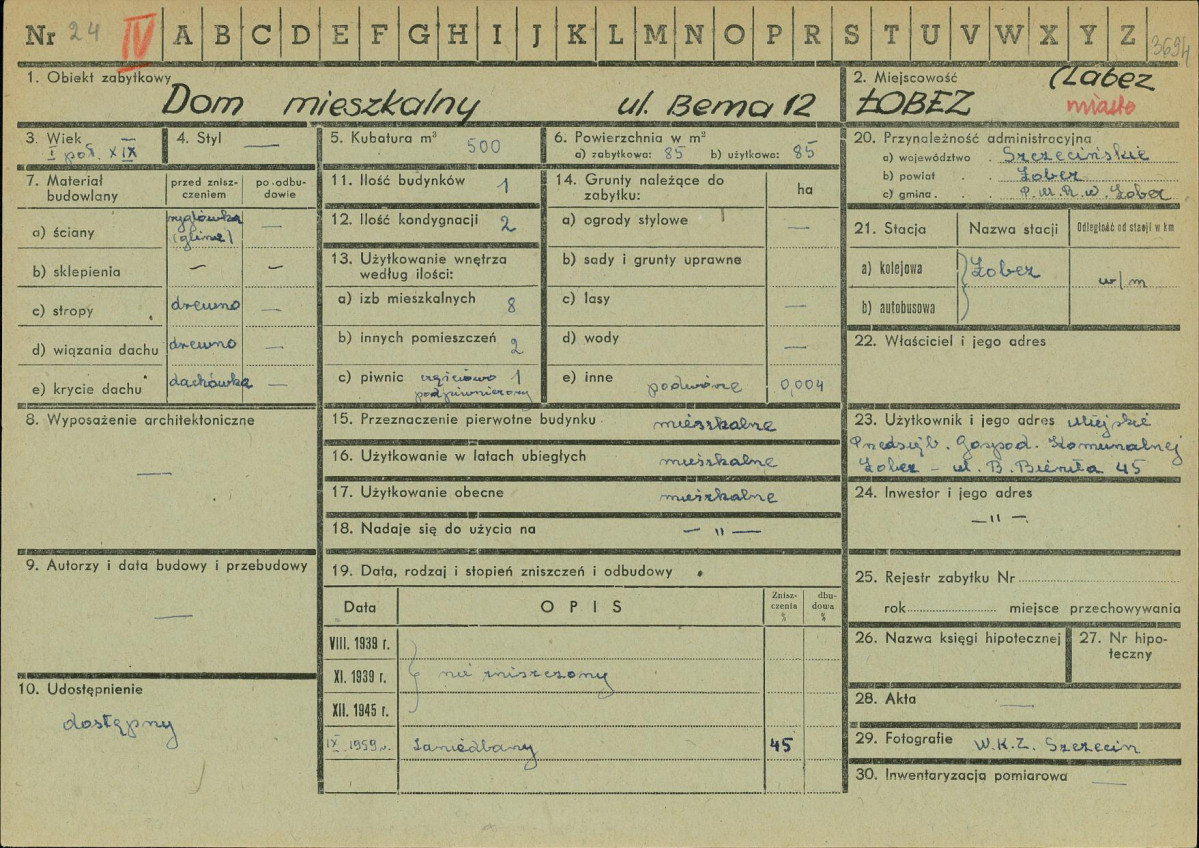 Nr 24 IV A B C D E F G H I J K L M N O P R S T U V W X Y Z 3694
1. Obiekt zabytkowy
Dom mieszkalny ul. Bema 12
2. Miejscowość (Labez
ŁOBEZ miasto
3. Wiek —
I poł. XIX
4. Styl —
5. Kubatura m³ 500
6. Powierzchnia w m²
a) zabytkowa: 85 b) użytkowa: 85
7. Materiał budowlany
przed zniszczeniem
po odbudowie
a) ściany ryglówka (glina) —
b) sklepienia — —
c) stropy drewno —
d) wiązania dachu drewno —
e) krycie dachu dachówka —
8. Wyposażenie architektoniczne
—
9. Autorzy i data budowy i przebudowy
—
10. Udostępnienie
dostępny
11. Ilość budynków 1
12. Ilość kondygnacji 2
13. Użytkowanie wnętrza
według ilości:
a) izb mieszkalnych 8
b) innych pomieszczeń 2
c) piwnic częściowo 1
podpiwniczony
14. Grunty należące do
zabytku:
ha
a) ogrody stylowe —
b) sady i grunty uprawne
c) lasy —
d) wody —
e) inne podwórze 0,004
15. Przeznaczenie pierwotne budynku mieszkalne
16. Użytkowanie w latach ubiegłych mieszkalne
17. Użytkowanie obecne mieszkalne
18. Nadaje się do użycia na — " —
19. Data, rodzaj i stopień zniszczeń i odbudowy
Data
OPIS
Zniszczenia %
dbudowa %
VIII. 1939 r.
XI. 1939 r. nie zniszczony
XII. 1945 r.
IX. 1959 r. Zaniedbany 45
20. Przynależność administracyjna
a) województwo . Szczecińskie
b) powiat . . Łobez
c) gmina . . P.M.R.w. Łobez
21. Stacja
Nazwa stacji
Odległość od stacji w km
a) kolejowa Łobez w/m
b) autobusowa
22. Właściciel i jego adres
23. Użytkownik i jego adres Miejskie
Przedsięb. Gospod. Komunalnej
Łobez – ul. B. Bieruta 45
24. Inwestor i jego adres
— " —
25. Rejestr zabytku Nr
rok miejsce przechowywania
26. Nazwa księgi hipotecznej
27. Nr hipoteczny
28. Akta —
29. Fotografie W.K.Z. Szczecin
30. Inwentaryzacja pomiarowa —